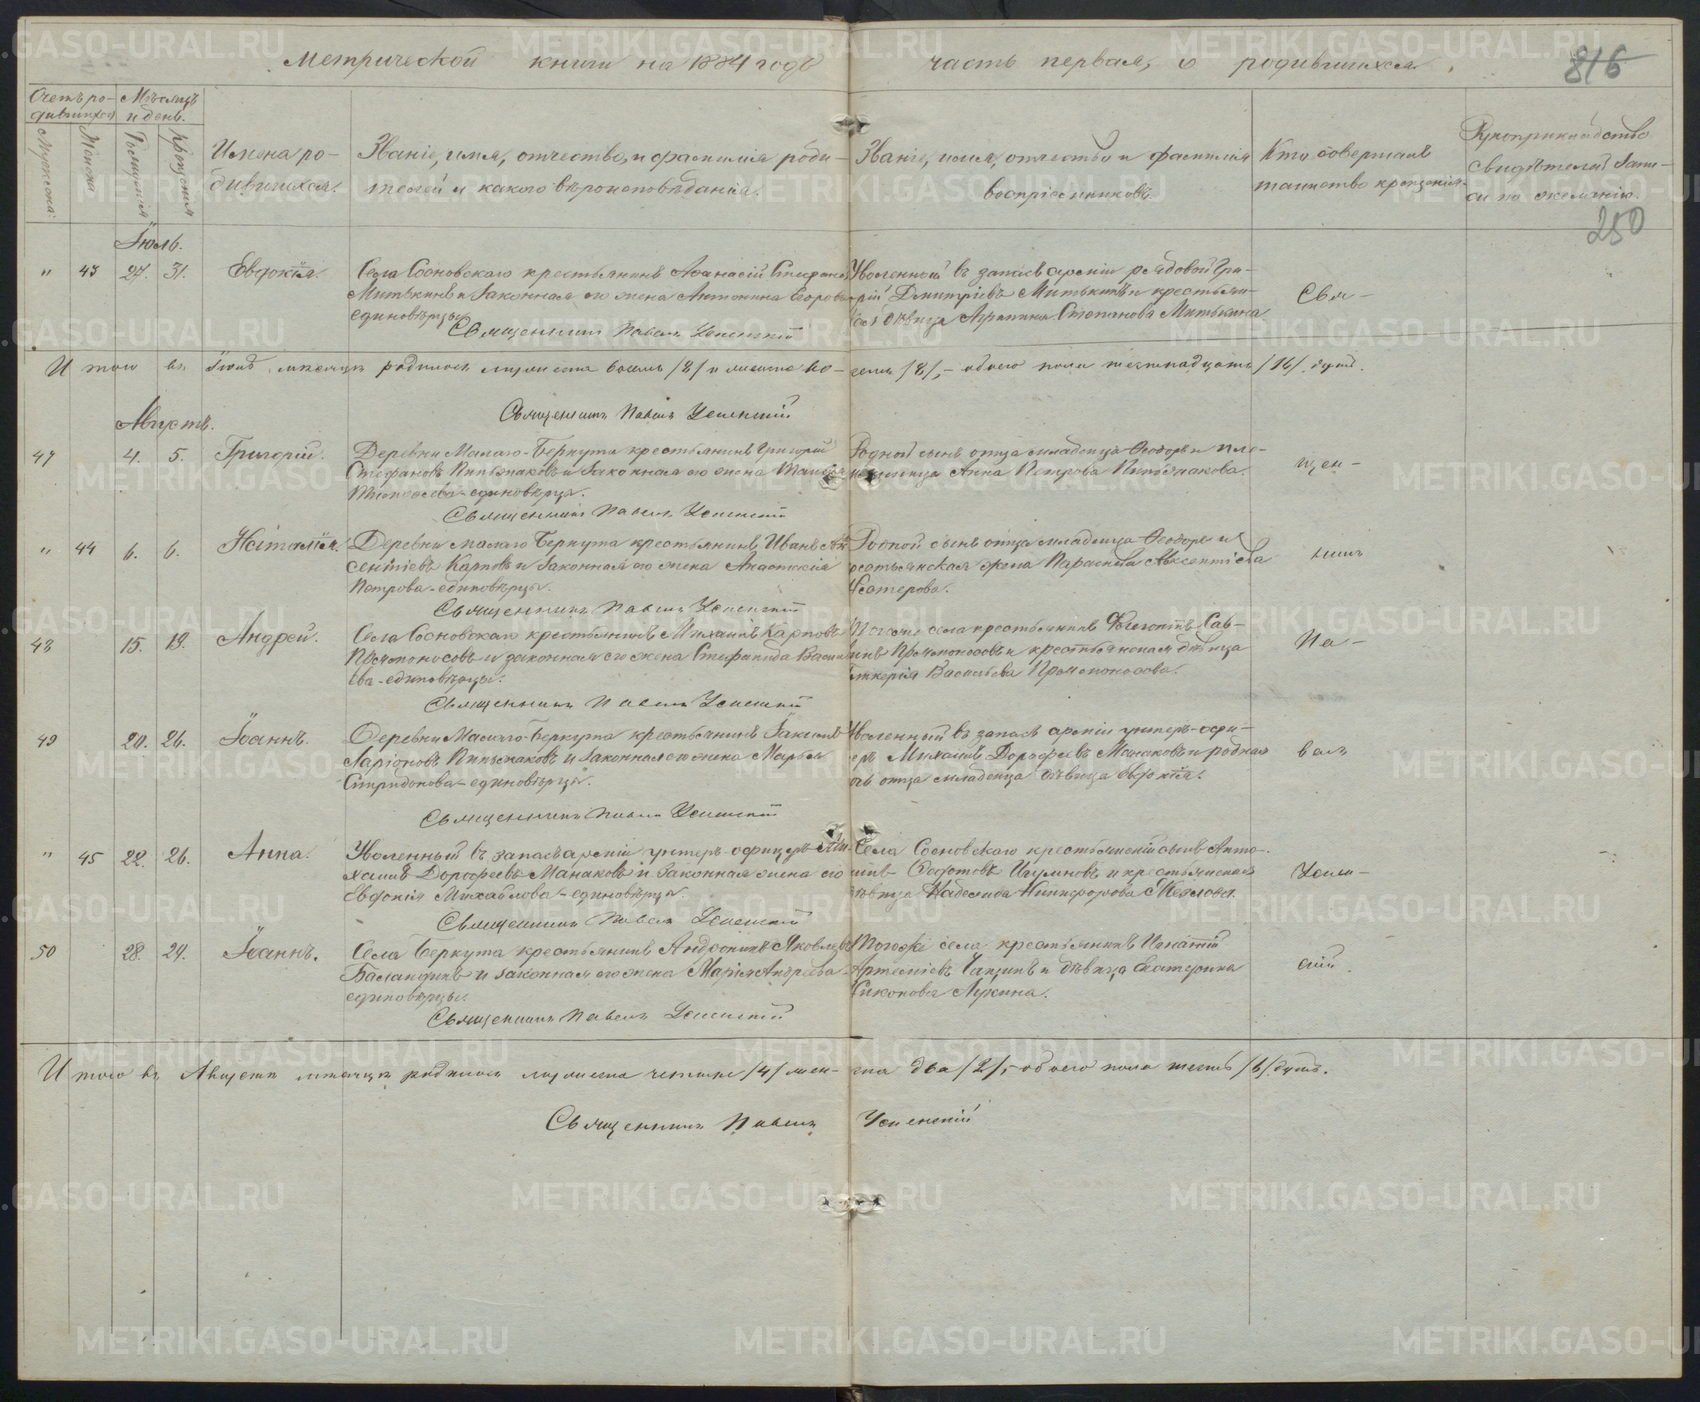 Метрической книги на 1884 годъ часть первая, о родившихся.
816
Счетъ ро-
дившихся
Мѣсяцъ
и день.
Мужеска.
Женска
Рожденія
Крещенія
Имена ро-
дившихся.
Званіе, имя, отчество, и фамилія роди-
телей и какого вѣроисповѣданія.
Званіе, имя, отчество и фамилія
воспріемниковъ.
Кто совершалъ
таинство крещенія.
Рукоприкладство
свидѣтелей запи-
си по желанію.
250
Іюль.
" 43 27. 31. Евдокія.
Села Сосновскаго крестьянинъ Аѳанасій
Митькинъ и законная его жена Антонина
единовѣрцы
Священникъ Павелъ Успенскій
Уволенной въ запасъ арміи рядовой Гри-
горій Дмитріевъ Митькинъ и крестьян-
ская дѣвица Агрипина Степанова Митькина
Свя-
Итого въ Іюлѣ мѣсяцѣ родилось мужеска восемь /8/ и женска во-
семь /8/, - обоего пола шестнадцать /16/ душъ.
Священникъ Павелъ Успенскій
Августъ.
47 4. 5. Григорій.
Деревни Малаго-Беркута крестьянинъ Григорій
Стефановъ и законная его жена
единовѣрцы.
Священникъ Павелъ Успенскій
Родной сынъ отца младенца Ѳеодоръ и пле-
мянница Анна Петрова
щен-
" 44 6. 6. Наталія.
Деревни малаго Беркута крестьянинъ Иванъ Ав-
сентіевъ Карповъ и законная его жена Анастасія
Петрова - единовѣрцы.
Священникъ Павелъ Успенскій
Родной сынъ отца младенца Ѳеодоръ и
крестьянская жена Параскева Авксентіева
никъ
48 15. 19. Андрей.
Села Сосновскаго крестьянинъ Михаилъ Карповъ
Прямоносовъ и законная его жена Стефанида Василь-
ева - единовѣрцы.
Священникъ Павелъ Успенскій
Того же села крестьянинъ Сав-
винъ Прямоносовъ и крестьянская дѣвица
Гликерія Васильева Прямоносова.
Па-
49 20. 26. Іоаннъ.
Деревни Малаго-Беркута крестьянинъ Іакимъ
Ларіоновъ и законная его жена Марѳа
Спиридонова - единовѣрцы.
Священникъ Павелъ Успенскій
Уволенный въ запасъ арміи унтеръ-офи-
церъ Михаилъ Дороѳеевъ Манаковъ и родная
дочь отца младенца дѣвица Евдокія.
велъ
" 45 22. 26. Анна.
Уволенный въ запасъ арміи унтеръ-офицеръ Ми-
хаилъ Дороѳеевъ Манаковъ и законная жена его
Евдокія Михайлова - единовѣрцы.
Священникъ Павелъ Успенскій
Села Сосновскаго крестьянскій сынъ Анто-
нинъ Ѳедотовъ Игумновъ и крестьянская
дѣвица Надежда Никифорова
Успен-
50 28. 29. Іоаннъ.
Села Беркута крестьянинъ Андроникъ Яковлевъ
Баландинъ и законная его жена Марія Андреева
единовѣрцы.
Священникъ Павелъ Успенскій
Тогоже села крестьянинъ Игнатій
Артеміевъ и дѣвица Екатерина
скій.
Итого въ Августѣ мѣсяцѣ родилось мужеска четыре /4/ жен-
ска два /2/, - обоего пола шесть /6/ душъ.
Священникъ Павелъ Успенскій
METRIKI.GASO-URAL.RU